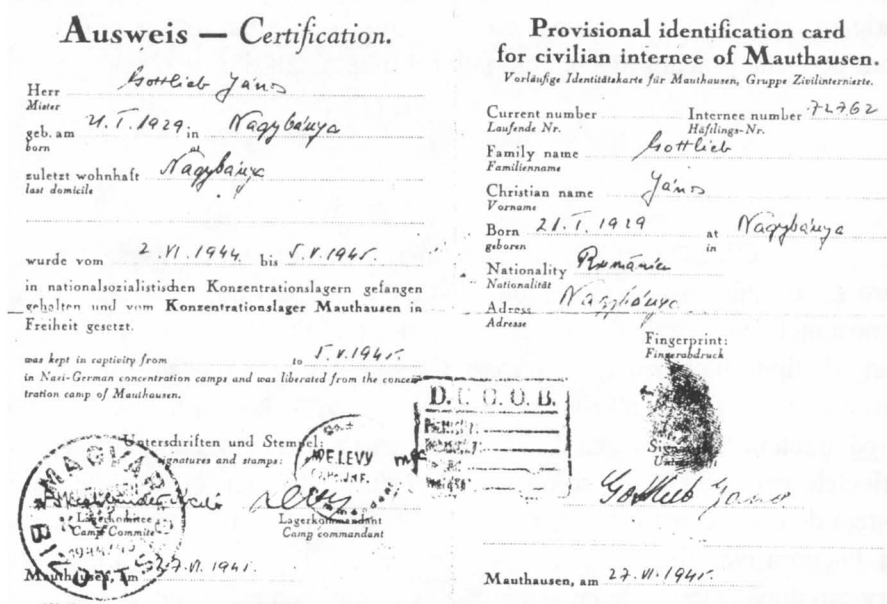 Ausweis — Certification.
Herr Gottlieb János
Mister
geb. am 21. I. 1929 in Nagybánya
born at
zuletzt wohnhaft Nagybánya
last domicile
wurde vom 2. VI. 1944. bis 5. V. 1945.
in nationalsozialistischen Konzentrationslagern gefangen
gehalten und vom Konzentrationslager Mauthausen in
Freiheit gesetzt.
was kept in captivity from to 5. V. 1945.
in Nasi-German concentration camps and was liberated from the concen-
tration camp of Mauthausen.
Unterschriften und Stempel:
signatures and stamps:
LEVY
MAGYAR
Lagerkomitee
Camp Commite
Lagerkommandant
Camp commandant
Mauthausen, am 27. VI. 1945.
Provisional identification card
for civilian internee of Mauthausen.
Vorläufige Identitätskarte für Mauthausen, Gruppe Zivilinternierte.
Current number Internee number 72762
Laufende Nr. Häftlings-Nr.
Family name Gottlieb
Familienname
Christian name János
Vorname
Born 21. I. 1929 at Nagybánya
geboren in
Nationality Románia
Nationalität
Adress Nagybánya
Adresse
Fingerprint:
Fingerabdruck
D. E. G. O. B.
Gottlieb János
Mauthausen, am 27. VI. 1945.